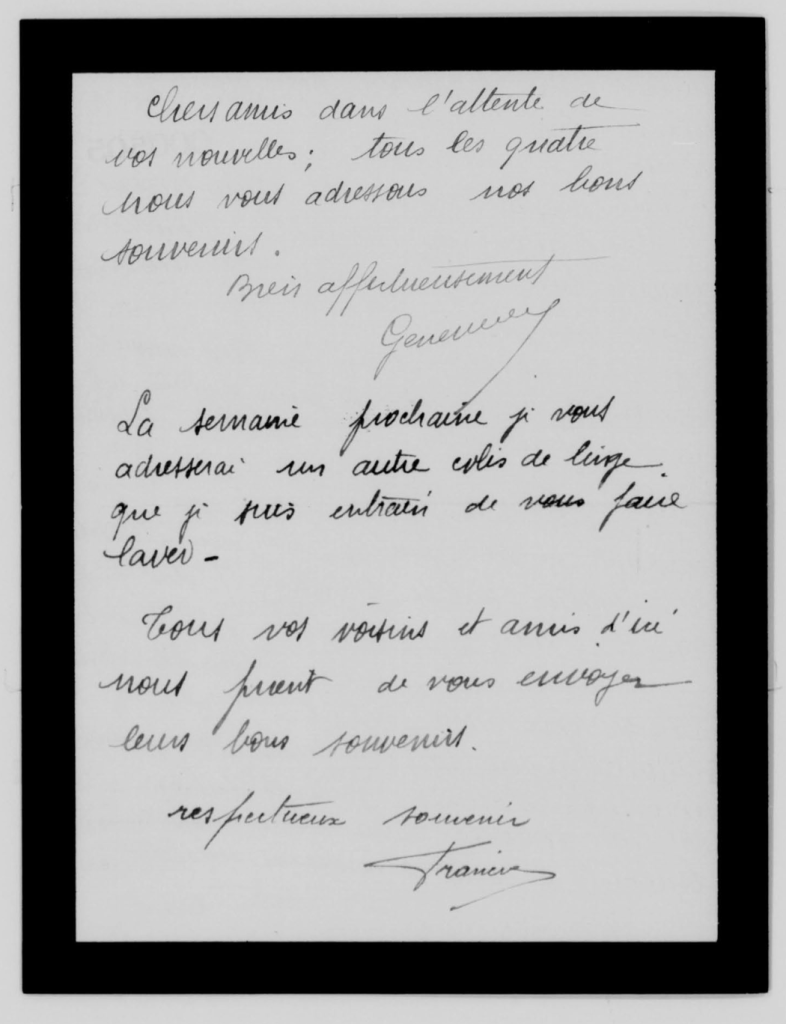 Chers amis dans l'attente de
vos nouvelles; tous les quatre
nous vous adressons nos bons
souvenirs.
Bien affectueusement
Genevieve
La semaine prochaine je vous
adresserai un autre colis de linge
que je suis entrain de vous faire
laver -
Tous vos voisins et amis d'ici
nous prient de vous envoyer
leurs bons souvenirs.
respectueux souvenir